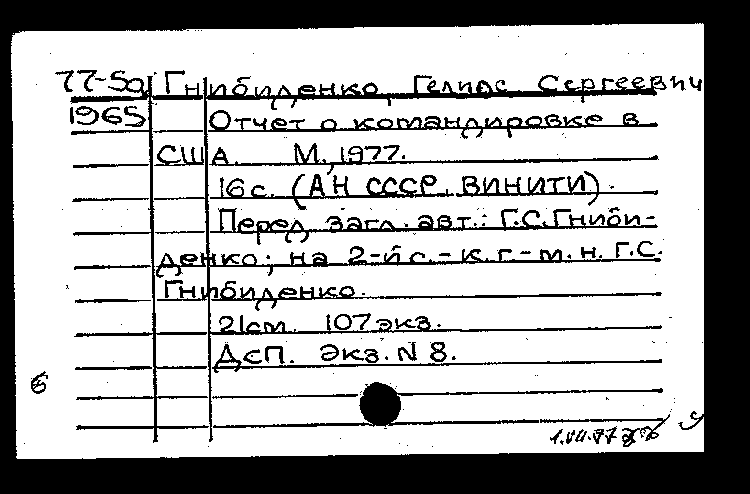 77-5а Гнибиденко, Гелиос Сергеевич
1965 Отчет о командировке в
США. М., 1977.
16с. (АН СССР. ВИНИТИ).
Перед загл. авт.: Г.С.Гниби-
денко; на 2-й с.- к.г-м.н. Г.С.
Гнибиденко.
21см. 107экз.
ДСП. Экз. N 8.
6
1.VII.77